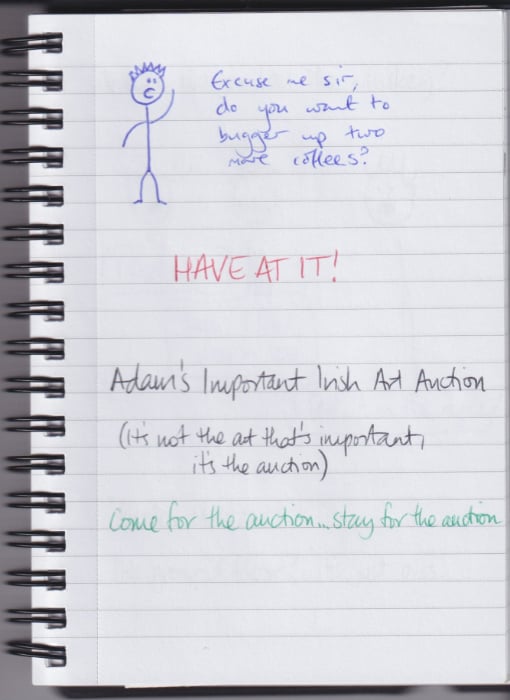 Excuse me sir,
do you want to
bugger up two
more coffees?
HAVE AT IT!
Adam's Important Irish Art Auction
(it's not the art that's important,
it's the auction)
Come for the auction...stay for the auction